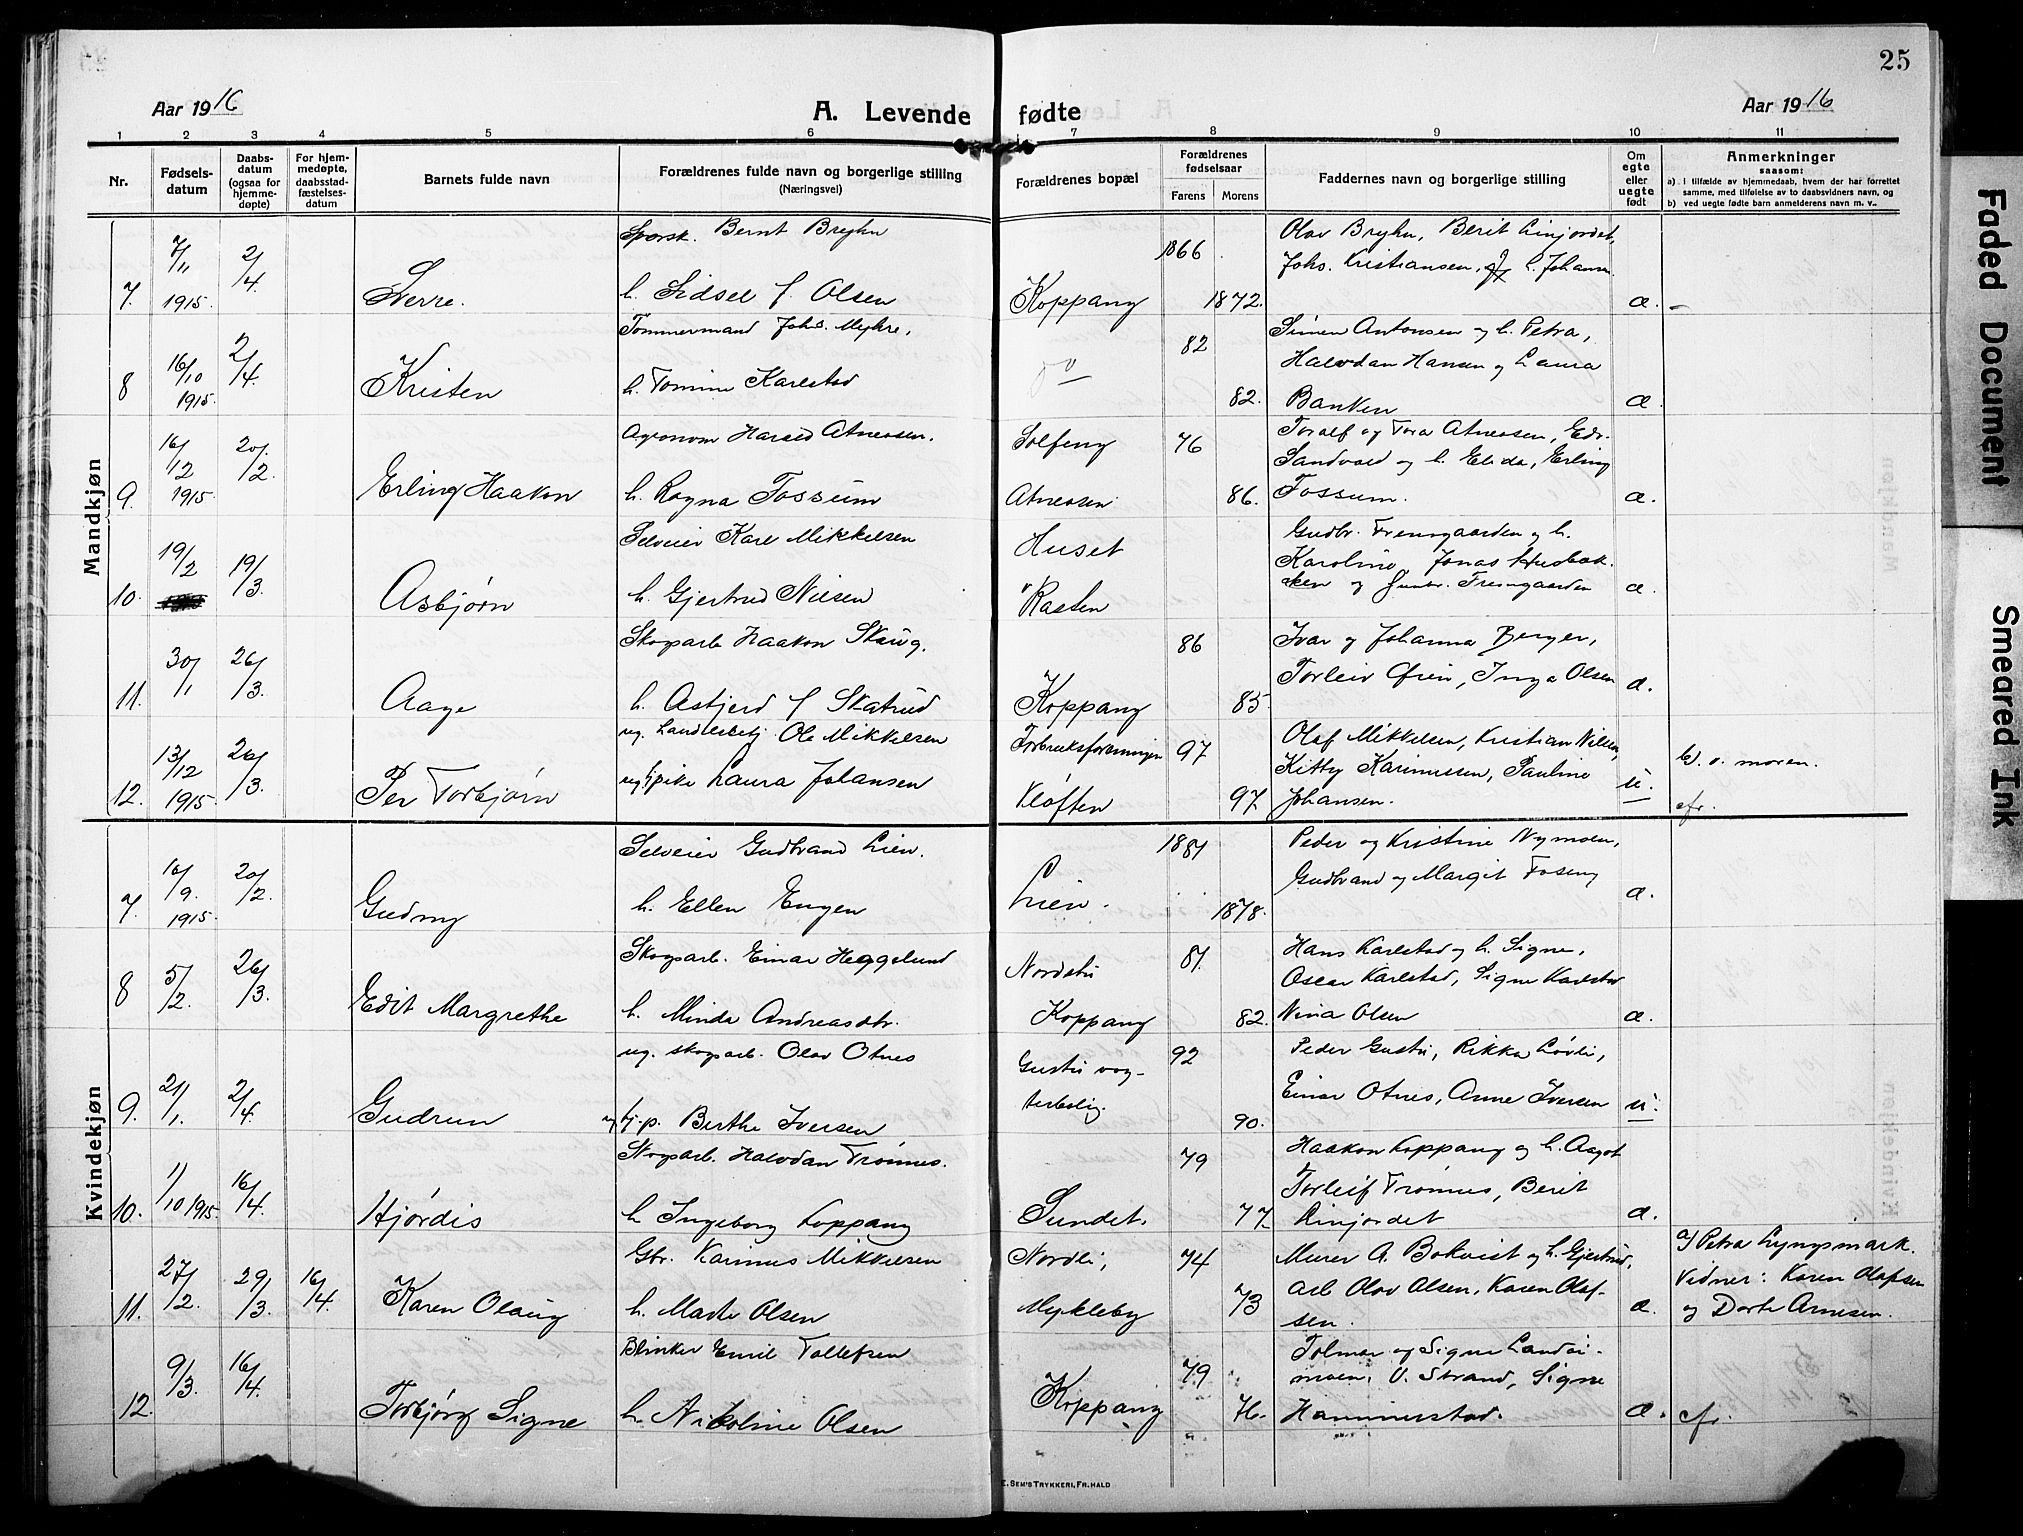 25
Aar 1916
A. Levende fødte
Aar 1916
1 2 3 4 5 6 7 8 9 10 11
Nr.
Fødsels-
datum
Daabs-
datum
(ogsaa for
hjemme-
døpte)
For hjem-
medøpte,
daabsstad-
fæstelses-
datum
Barnets fulde navn
Forældrenes fulde navn og borgerlige stilling
(Næringsvei)
Forældrenes bopæl
Forældrenes
fødselsaar
Farens Morens
Faddernes navn og borgerlige stilling
Om
egte
eller
uegte
født
Anmerkninger
saasom:
a) i tilfælde av hjemmedaab, hvem der har forrettet
samme, med tilføielse av to daabsvidners navn, og
b) ved uegte fødte barn anmelderens navn m. v..
Mandkjøn
7. 7/11 1915. 2/4 Sverre.
Bernt Bryhn
h. Sidsel f. Olsen
Koppang 1866 1872.
Olav Bryhn, Berit Linjordet,
Johs. Kristiansen, L. Johansen
æ. -
8 16/10 1915. 2/4 Kristen
Tømmermand Johs. Myhre,
h. Tomine Karlstad
do 82 82.
Simen Antonsen og h. Petra,
Halvdan Hansen og Laura
Banken
æ
9. 16/12 1915 20/2. Erling Haakon
Agronom Harald Atneosen.
h. Ragna Fossum
Solfeng
Atneosen 76 86.
Toralf og Tora Atneosen, Edv.
Sandvold og h. Elida, Erling
Fossum.
æ.
10. 19/2 19/3. Asbjørn
Selveier Karl Mikkelsen
h. Gjertrud Nilsen
Huset
Rasten
Gudbr. Fremgaarden og h.
Karoline, Jonas Husbak-
ken og Gunbr. Fremgaarden
æ.
11. 30/1 26/3. Aage
Skogsarb Haakon Skaug.
h. Astjerd f Skatrud
Koppang 86 85.
Ivar og Johanna Berger,
Torleiv Øien, Inga Olsen
æ.
12. 13/12 1915. 26/3. Per Torbjørn
ug. Ole Mikkelsen
ug. tj pike Laura Johansen
Forbruksforeningen
Kløften 97 97.
Olaf Mikkelsen, Kristian Nilsen,
Kitty Karinussen, Pauline
Johansen.
u.
b). v. moren.
cfr.
Kvindekjøn
7. 16/9. 1915 20/2. Gudny
Selveier Gudbrand Lien.
h. Ellen Engen
Lien. 1881 1878.
Peder og Kristine Nymoen,
Gudbrand og Margit Foseng
æ.
8 5/2. 26/3. Edit Margrethe
Skogsarb. Einar Heggelund
h. Minda Andreasdtr.
Nordstu
Koppang 81. 82.
Hans Karlstad og h. Signe,
Oscar Karlstad, Signe Karlstad
Nina Olsen
æ.
9. 21/1. 2/4. Gudrun
ug. skogsarb. Olav Otnes
ug tj. p. Berthe Iversen
Gustu vog-
terbolig. 92 90.
Peder Gustu, Rikka Løvli,
Einar Otnes, Anne Iversen
u.
10. 1/10 1915. 16/4. Hjørdis
Skogsarb. Halvdan Trønnes.
h. Ingeborg Koppang
Sundet. 79 77.
Haakon Koppang og h. Aagot
Torleif Trønnes, Berit
Linjordet
æ.
11. 27/2. 29/3. 16/4. Karen Olaug
Gbr. Karinus Mikkelsen
h. Marte Olsen
Nordli,
Mykleby 74 73
Murer A. Bokvist og h. Gjertrud,
arb Olav Olsen, Karen Olaf-
sen.
æ.
a) Petra Lyngsmark.
Vidner: Karen Olafsen
og Dorte Arnesen.
12. 9/3. 16/4. Torbjørg Signe
Blinker Emil Tollefsen
h. Nikoline Olsen
Koppang 79 76.
Tolmar og Signe Landsi-
moen, O. Strand, Signe
Hammerstad.
æ. cfr.
E. SEM'S TRYKKERI, FR.HALD
Faded Document
Smeared Ink